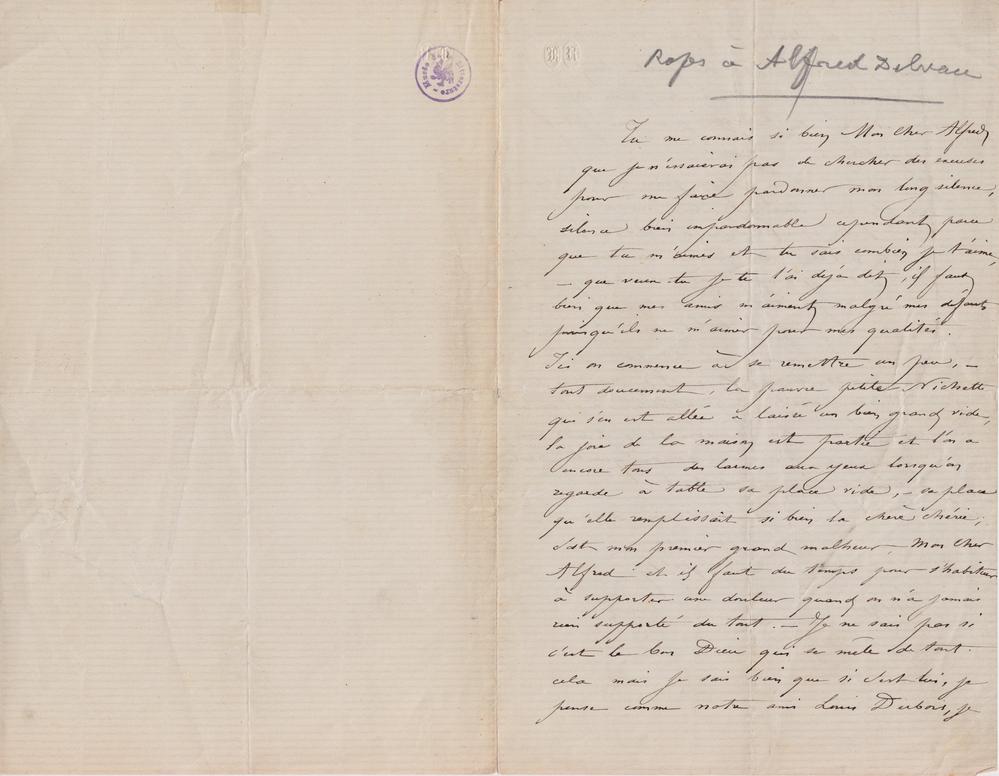 Musée de la Littérature
Rops à Alfred Delvau
Tu me connais si bien Mon Cher Alfred
que je n'essaierai pas de chercher des excuses
pour me faire pardonner mon long silence,
silence bien impardonnable cependant parce
que tu m'aimes et tu sais combien je t'aime,
– que veux tu je te l'ai déjà dit, il faut
bien que mes amis m'aiment malgré mes défauts
puisqu'ils ne m'aiment pour mes qualités.
Ici on commence à se remettre un peu, –
tout doucement, la pauvre petite Nichette
qui s'en est allée a laissé un bien grand vide,
la joie de la maison est partie et l'on a
encore tous des larmes aux yeux lorsqu'on
regarde à table sa place vide, – sa place
qu'elle remplissait si bien la chère chérie;
c'est mon premier grand malheur Mon Cher
Alfred et il faut du temps pour s'habituer
à supporter une douleur quand on n'a jamais
rien supporté du tout. – Je ne sais pas si
c'est le bon Dieu qui se mêle de tout
cela mais je sais bien que si c'est lui, je
pense comme notre ami Louis Dubois, je